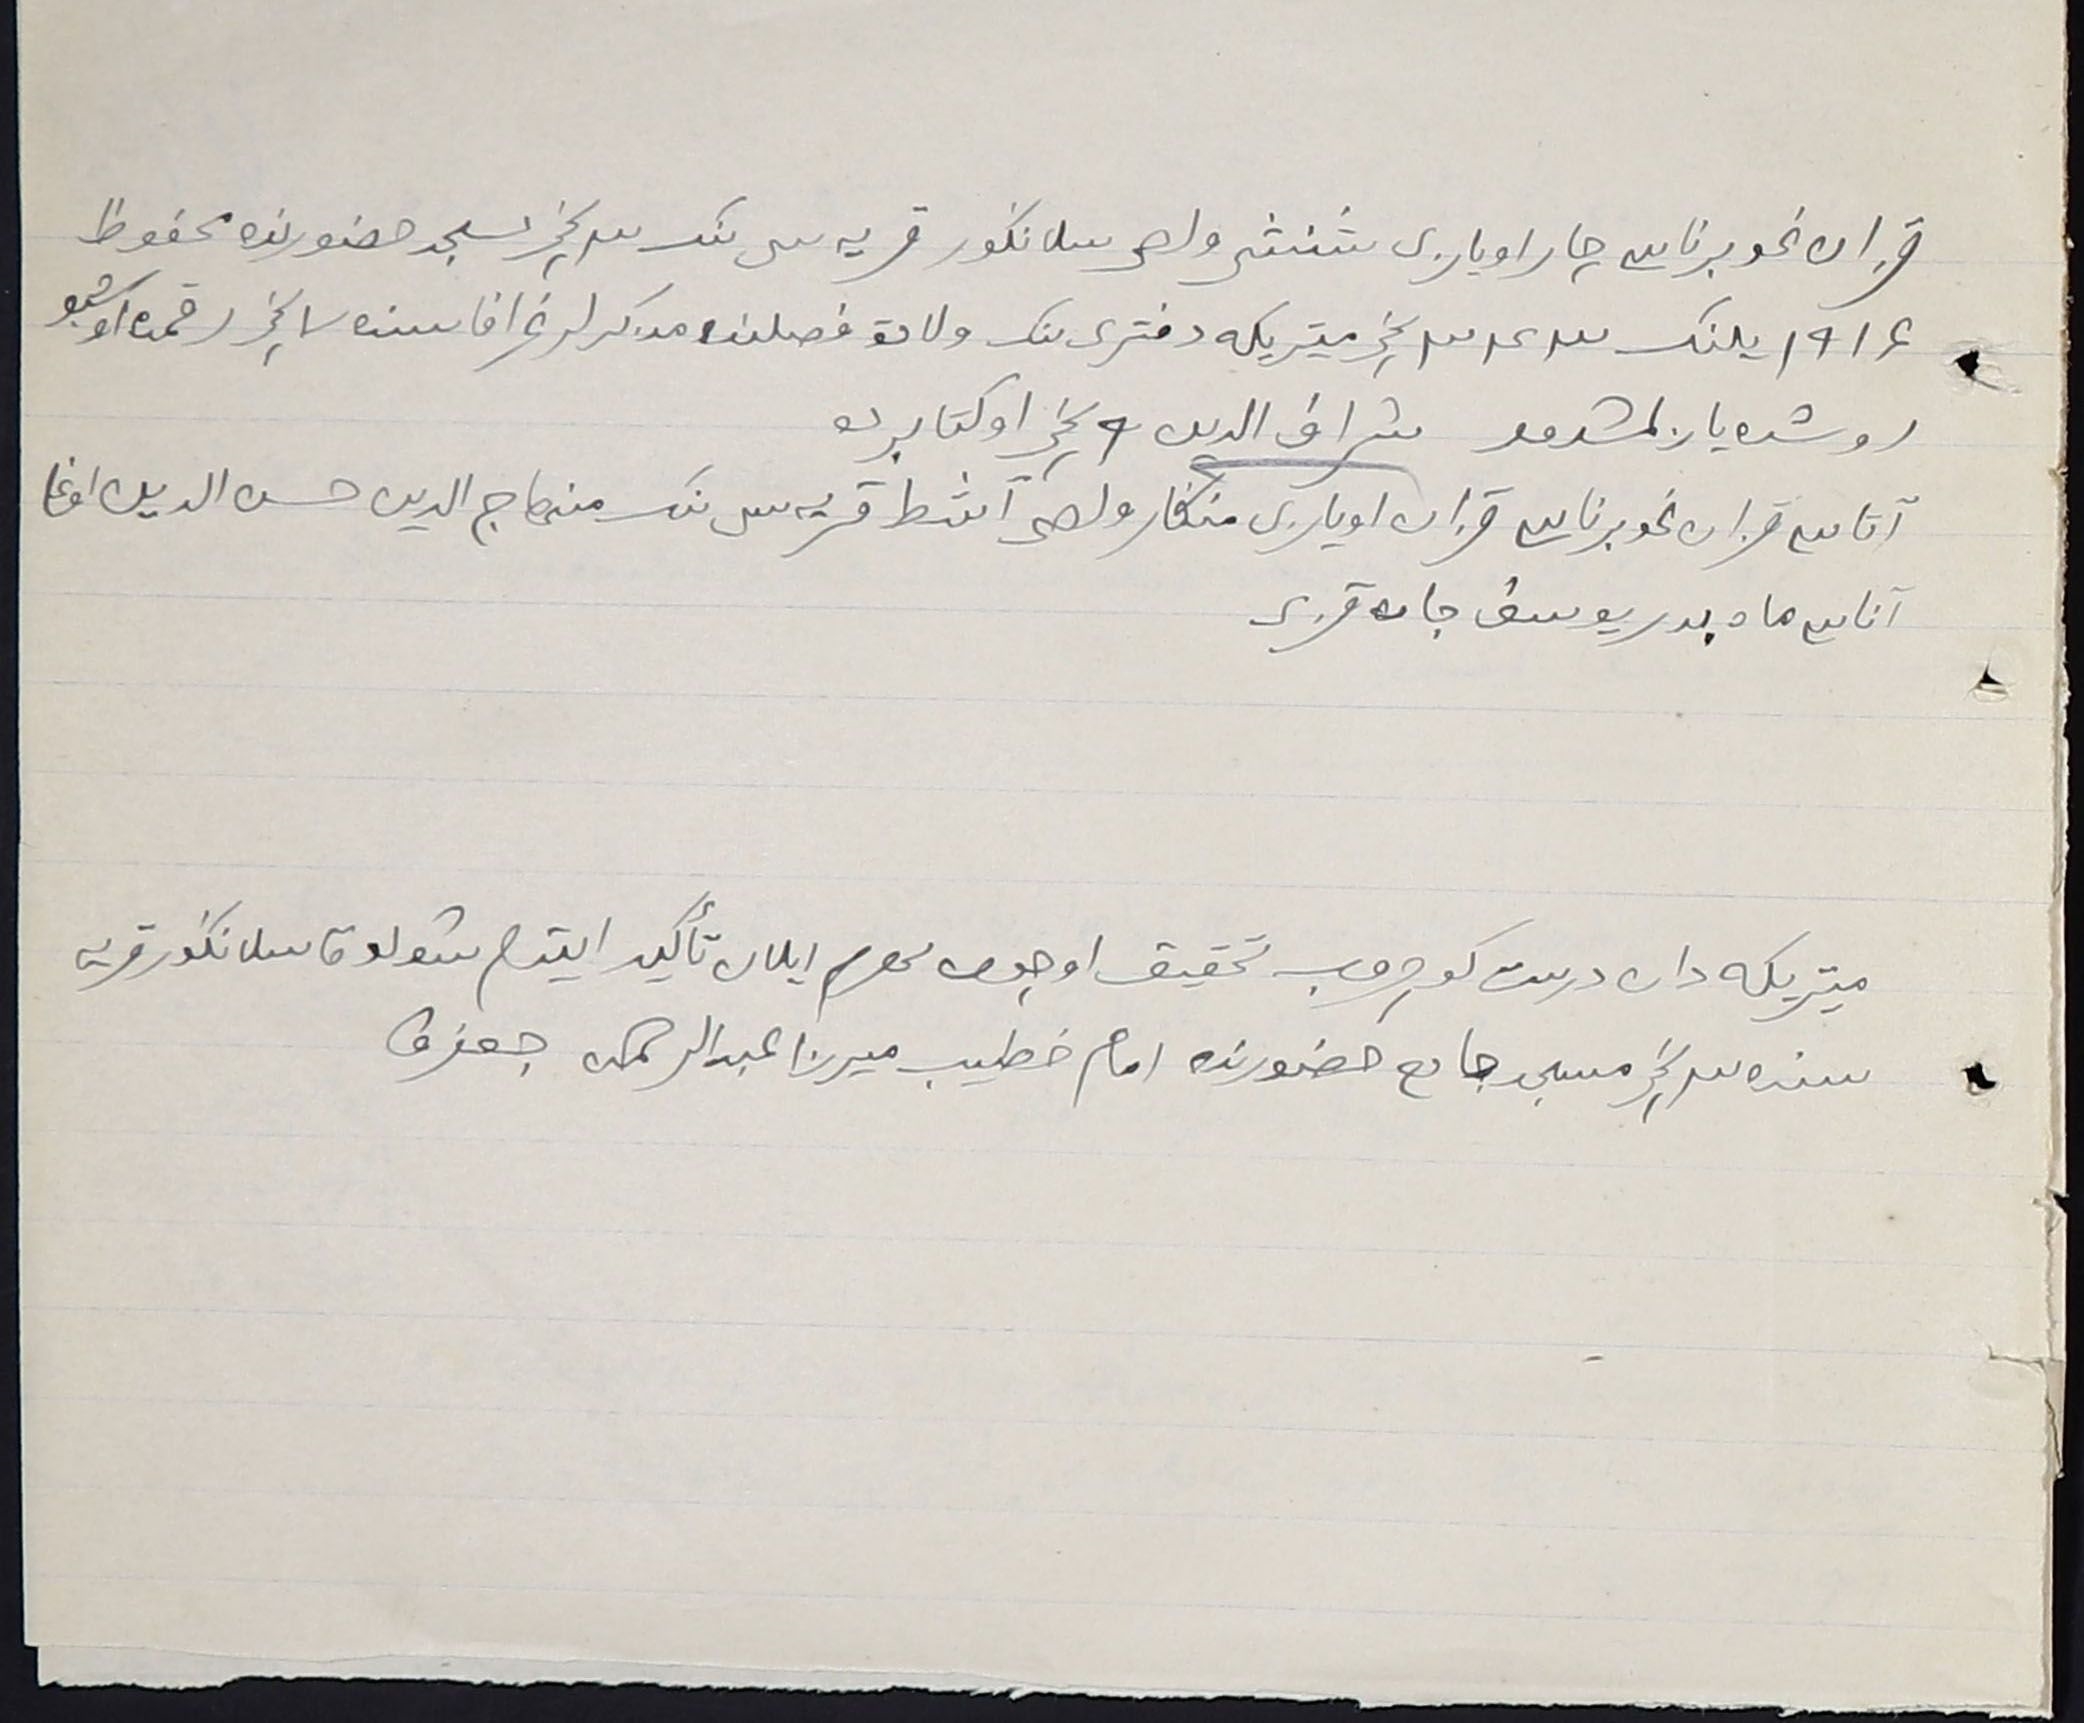 قزان غوبرناسی چار اویازی شنشی ولصی سلانکور قریه سی ننک نچی مسجد حضورنده محفوظ
۱۹۱۶ یلنک نچی میتریکه دفتری ننک ولادة فصلنده مذکرلر غرافاسنده ۷ نچی رقمده اوشبو
روشده یازلمشدر شراف الدین ۹ نچی اوکتابرده
آتاسی قزان غوبرناسی قزان اویازی منکار ولصی آشط قریه سی ننک منهاج الدین حسن الدین اوغلی
آناسی ماه بدر یوسف جان قزی
میتریکه دان درست کوچروب تحقیق اوچون مهرم ایلان تأکید ایتدم سلانکور قریه
سنده نچی مسجد جامع حضورنده امام خطیب میرزا عبدالرحمن جعفروف